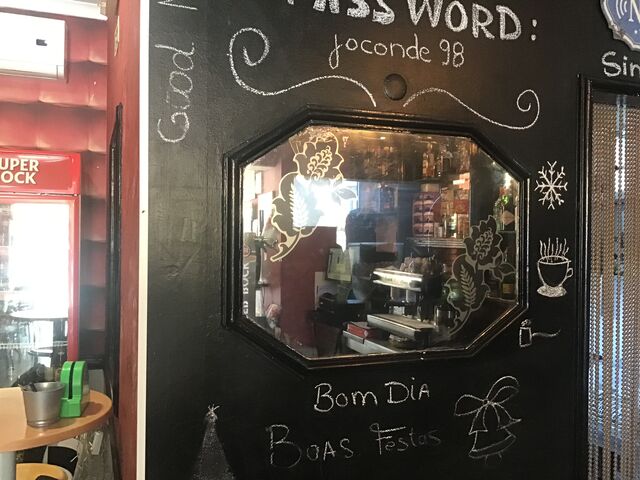 PASSWORD:
joconde 98
Good
Sin
SUPER
BOCK
BOM DIA
BOAS FESTAS